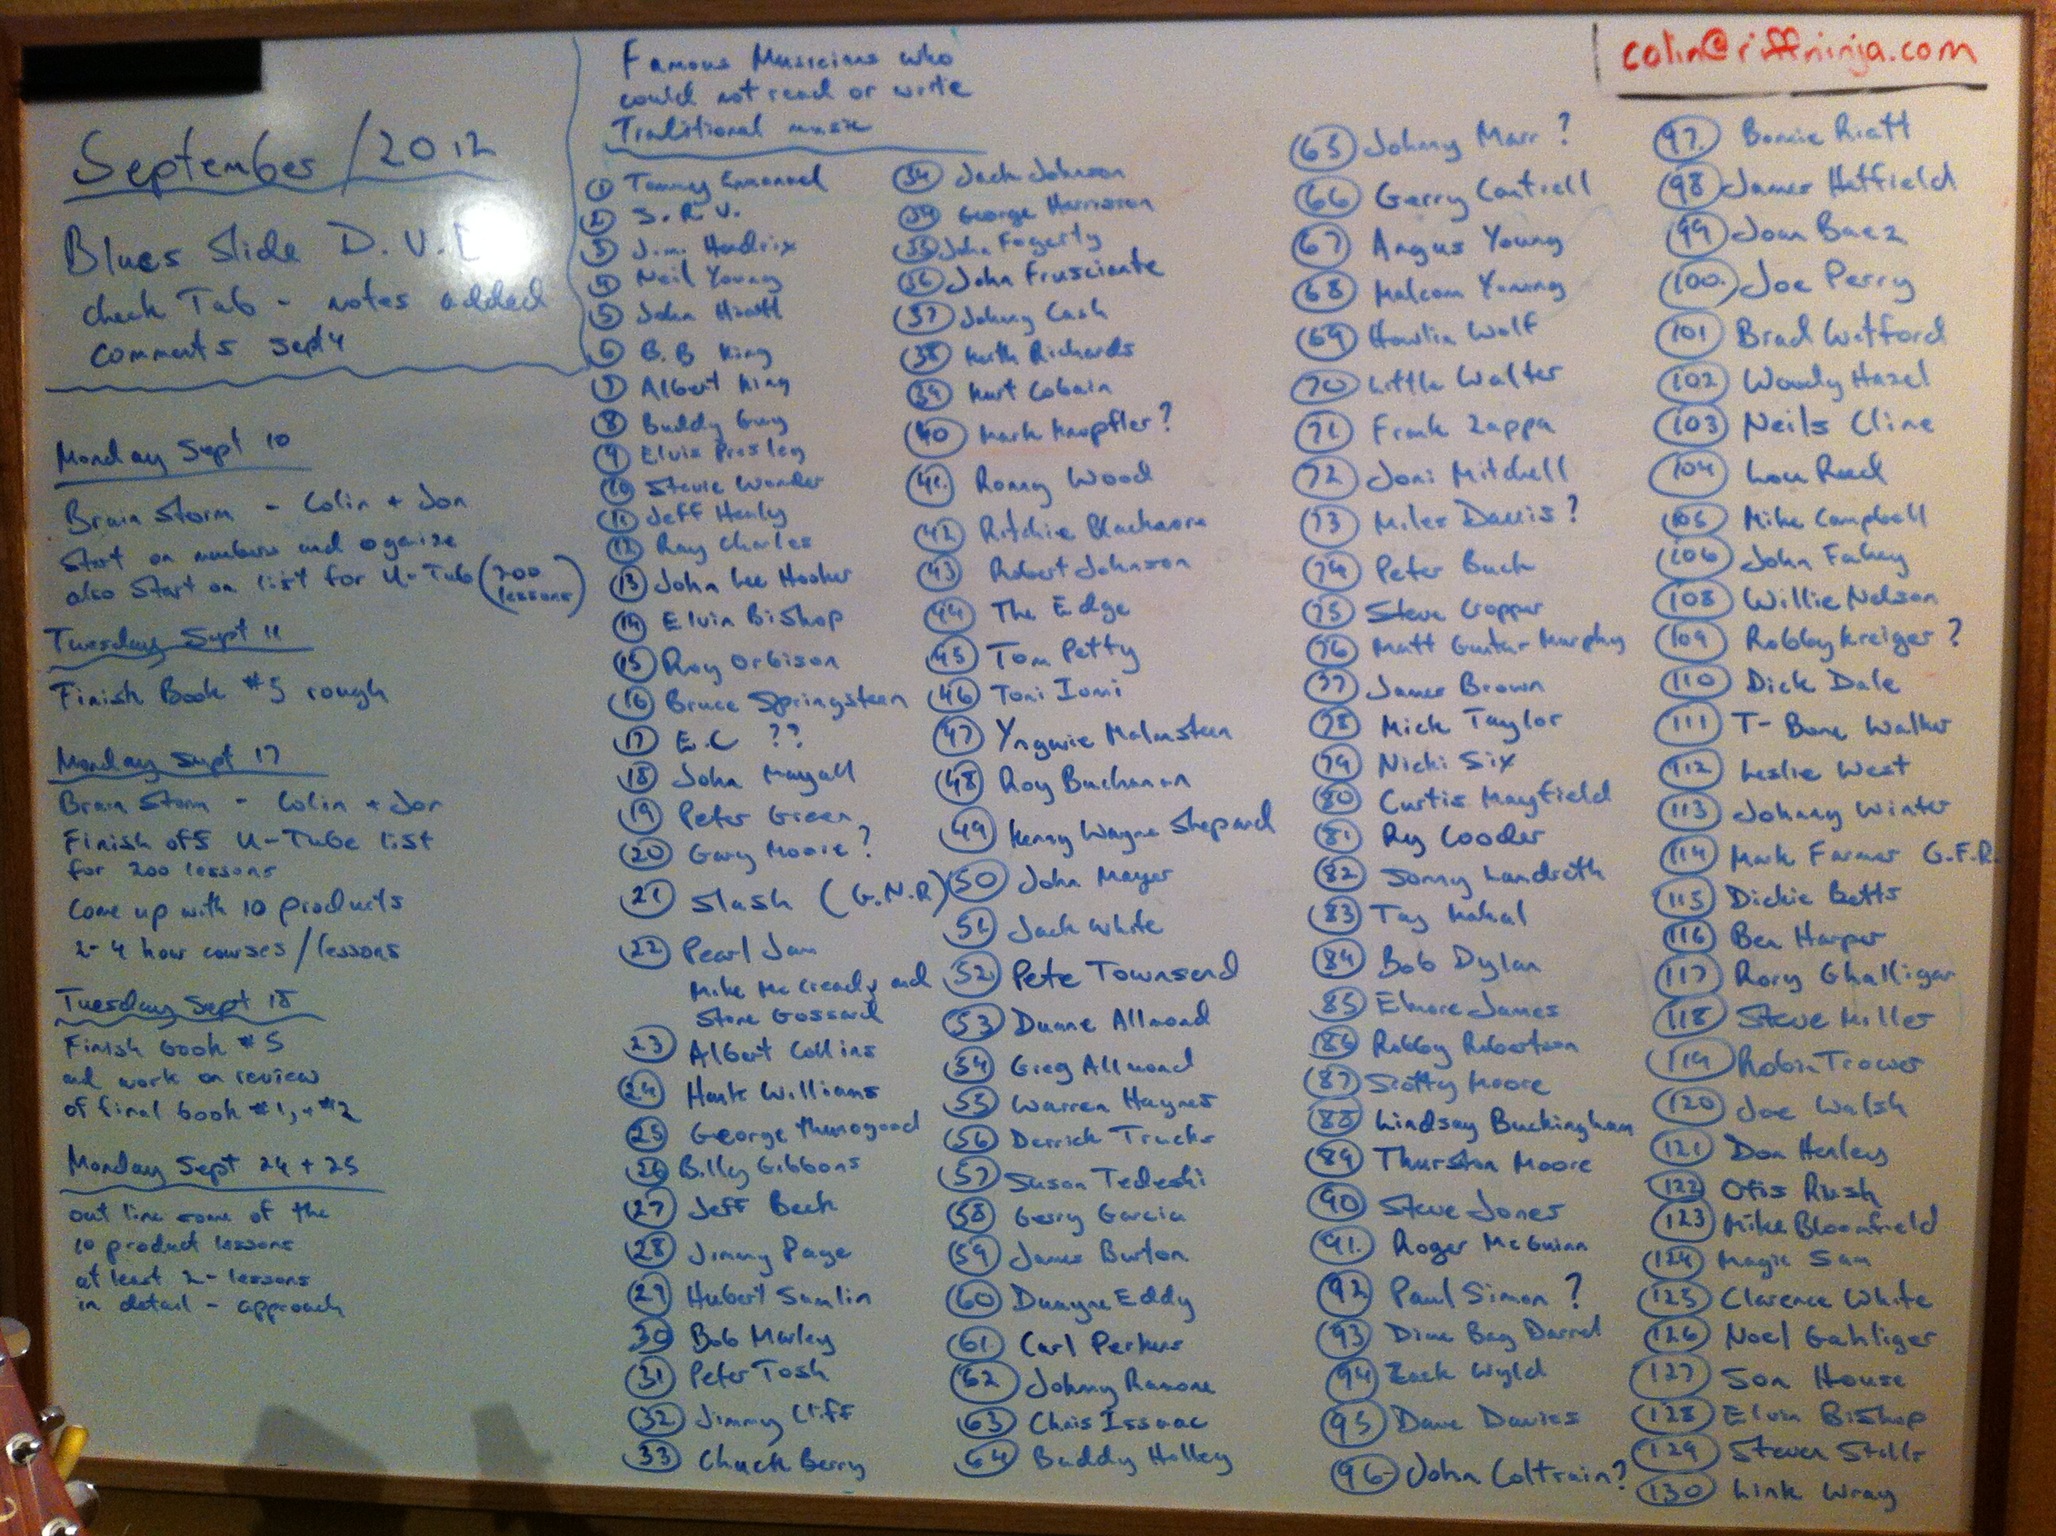 September / 2012
Blues Slide D.V.D
check Tab - notes added
comments sept 4
Monday Sept 10
Brain Storm - Colin + Jon
Start on numbers and oganize
also Start on list for U-Tub (200 lessons)
Tuesday Sept 11
Finish Book #5 rough
Monday Sept 17
Brain Storm - Colin + Jon
Finish off U-Tube list
for 200 lessons
Come up with 10 products
2-4 hour courses / lessons
Tuesday Sept 18
Finish book #5
and work on review
of final book #1, + #2
Monday Sept 24 + 25
out line some of the
10 product lessons
at least 2 - lessons
in detail - approach
Famous Musicians who
could not read or write
Traditional music
1 Tommy Emmanuel
2 S.R.V.
3 J.m. Hendrix
4 Neil Young
5 John Hiatt
6 B.B King
7 Albert King
8 Buddy Guy
9 Elvis Presley
10 Stevie Wonder
11 Jeff Healy
12 Ray Charles
13 John Lee Hooker
14 Elvin Bishop
15 Roy Orbison
16 Bruce Springsteen
17 E.C ??
18 John Mayall
19 Peter Green
20 Gary Moore?
21 Slash (G.N.R)
22 Pearl Jam
Mike McCready and
Stone Gossard
23 Albert Collins
24 Hank Williams
25 George Thorogood
26 Billy Gibbons
27 Jeff Beck
28 Jimmy Page
29 Hubert Sumlin
30 Bob Marley
31 Peter Tosh
32 Jimmy Cliff
33 Chuck Berry
34 Jack Johnson
34 George Harrison
35 John Fogerty
36 John Frusciante
37 Johny Cash
38 Keith Richards
39 Kurt Cobain
40 Mark Knopfler?
41. Ronny Wood
42 Ritchie Blackmore
43 Robert Johnson
44 The Edge
45 Tom Petty
46 Toni Iomi
47 Yngwie Malmsteen
48 Roy Buchanan
49 Kenny Wayne Shepard
50 John Mayer
51. Jack White
52 Pete Townsend
53 Duane Allmond
54 Greg Allmond
55 Warren Haynes
56 Derrick Trucks
57 Susan Tedeski
58 Gerry Garcia
59 James Burton
60 Duayne Eddy
61. Carl Perkins
62 Johnny Ramone
63 Chris Issaac
64 Buddy Holley
65 Johnny Marr?
66 Gerry Cantrell
67 Angus Young
68 Malcom Young
69 Howlin Wolf
70 Little Walter
71 Frank Zappa
72 Joni Mitchell
73 Miles Davis?
74 Peter Buck
75 Steve Cropper
76 Matt Guitar Murphy
77 James Brown
78 Mick Taylor
79 Nicki Six
80 Curtis Mayfield
81 Ry Cooder
82 Sonny Landreth
83 Taj Mahal
84 Bob Dylan
85 Elmore James
86 Robby Robertson
87 Scotty Moore
88 Lindsay Buckingham
89 Thurston Moore
90 Steve Jones
91. Roger McGuinn
92 Paul Simon?
93 Dime Bag Darrel
94 Zack Wyld
95 Dave Davies
96 John Coltrain?
colin@riffninja.com
97. Bonnie Riatt
98 James Hetfield
99 Joan Baez
100. Joe Perry
101 Brad Witford
102 Woody Hazel
103 Neils Cline
104 Lou Reed
105 Mike Campbell
106 John Fahey
108 Willie Nelson
109 Robby Kreiger?
110 Dick Dale
111 T-Bone Walker
112 Leslie West
113 Johnny Winter
114 Mark Farmer G.F.R.
115 Dickie Betts
116 Ben Harper
117 Rory Ghalligar
118 Steve Miller
119 Robin Trower
120 Joe Walsh
121 Don Henley
122 Otis Rush
123 Mike Bloomfield
124 Magic Sam
125 Clarence White
126 Noel Gahliger
127 Son House
128 Elvin Bishop
129 Steven Stills
130 Link Wray